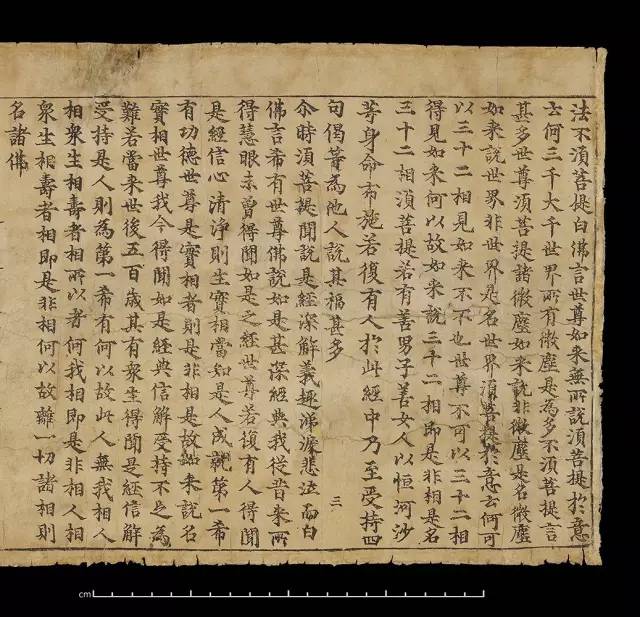 法不湏菩提白佛言世尊如来無所說湏菩提於意
云何三千大千世界所有微塵是為多不湏菩提言
甚多世尊湏菩提諸微塵如来說非微塵是名微塵
如来說世界非世界是名世界湏菩提於意云何可
以三十二相見如来不不也世尊不可以三十二相
得見如来何以故如来說三十二相即是非相是名
三十二相湏菩提若有善男子善女人以恒河沙
等身命布施若復有人於此經中乃至受持四
句偈等為他人說其福甚多
三
尒時湏菩提聞說是經深解義趣涕淚悲泣而白
佛言希有世尊佛說如是甚深經典我從昔来所
得慧眼未曾得聞如是之經世尊若復有人得聞
是經信心清淨則生實相當知是人成就第一希
有功德世尊是實相者則是非相是故如来說名
實相世尊我今得聞如是經典信解受持不足為
難若當来世後五百歲其有衆生得聞是經信解
受持是人則為第一希有何以故此人無我相人
相衆生相壽者相所以者何我相即是非相人相
衆生相壽者相即是非相何以故離一切諸相則
名諸佛
cm